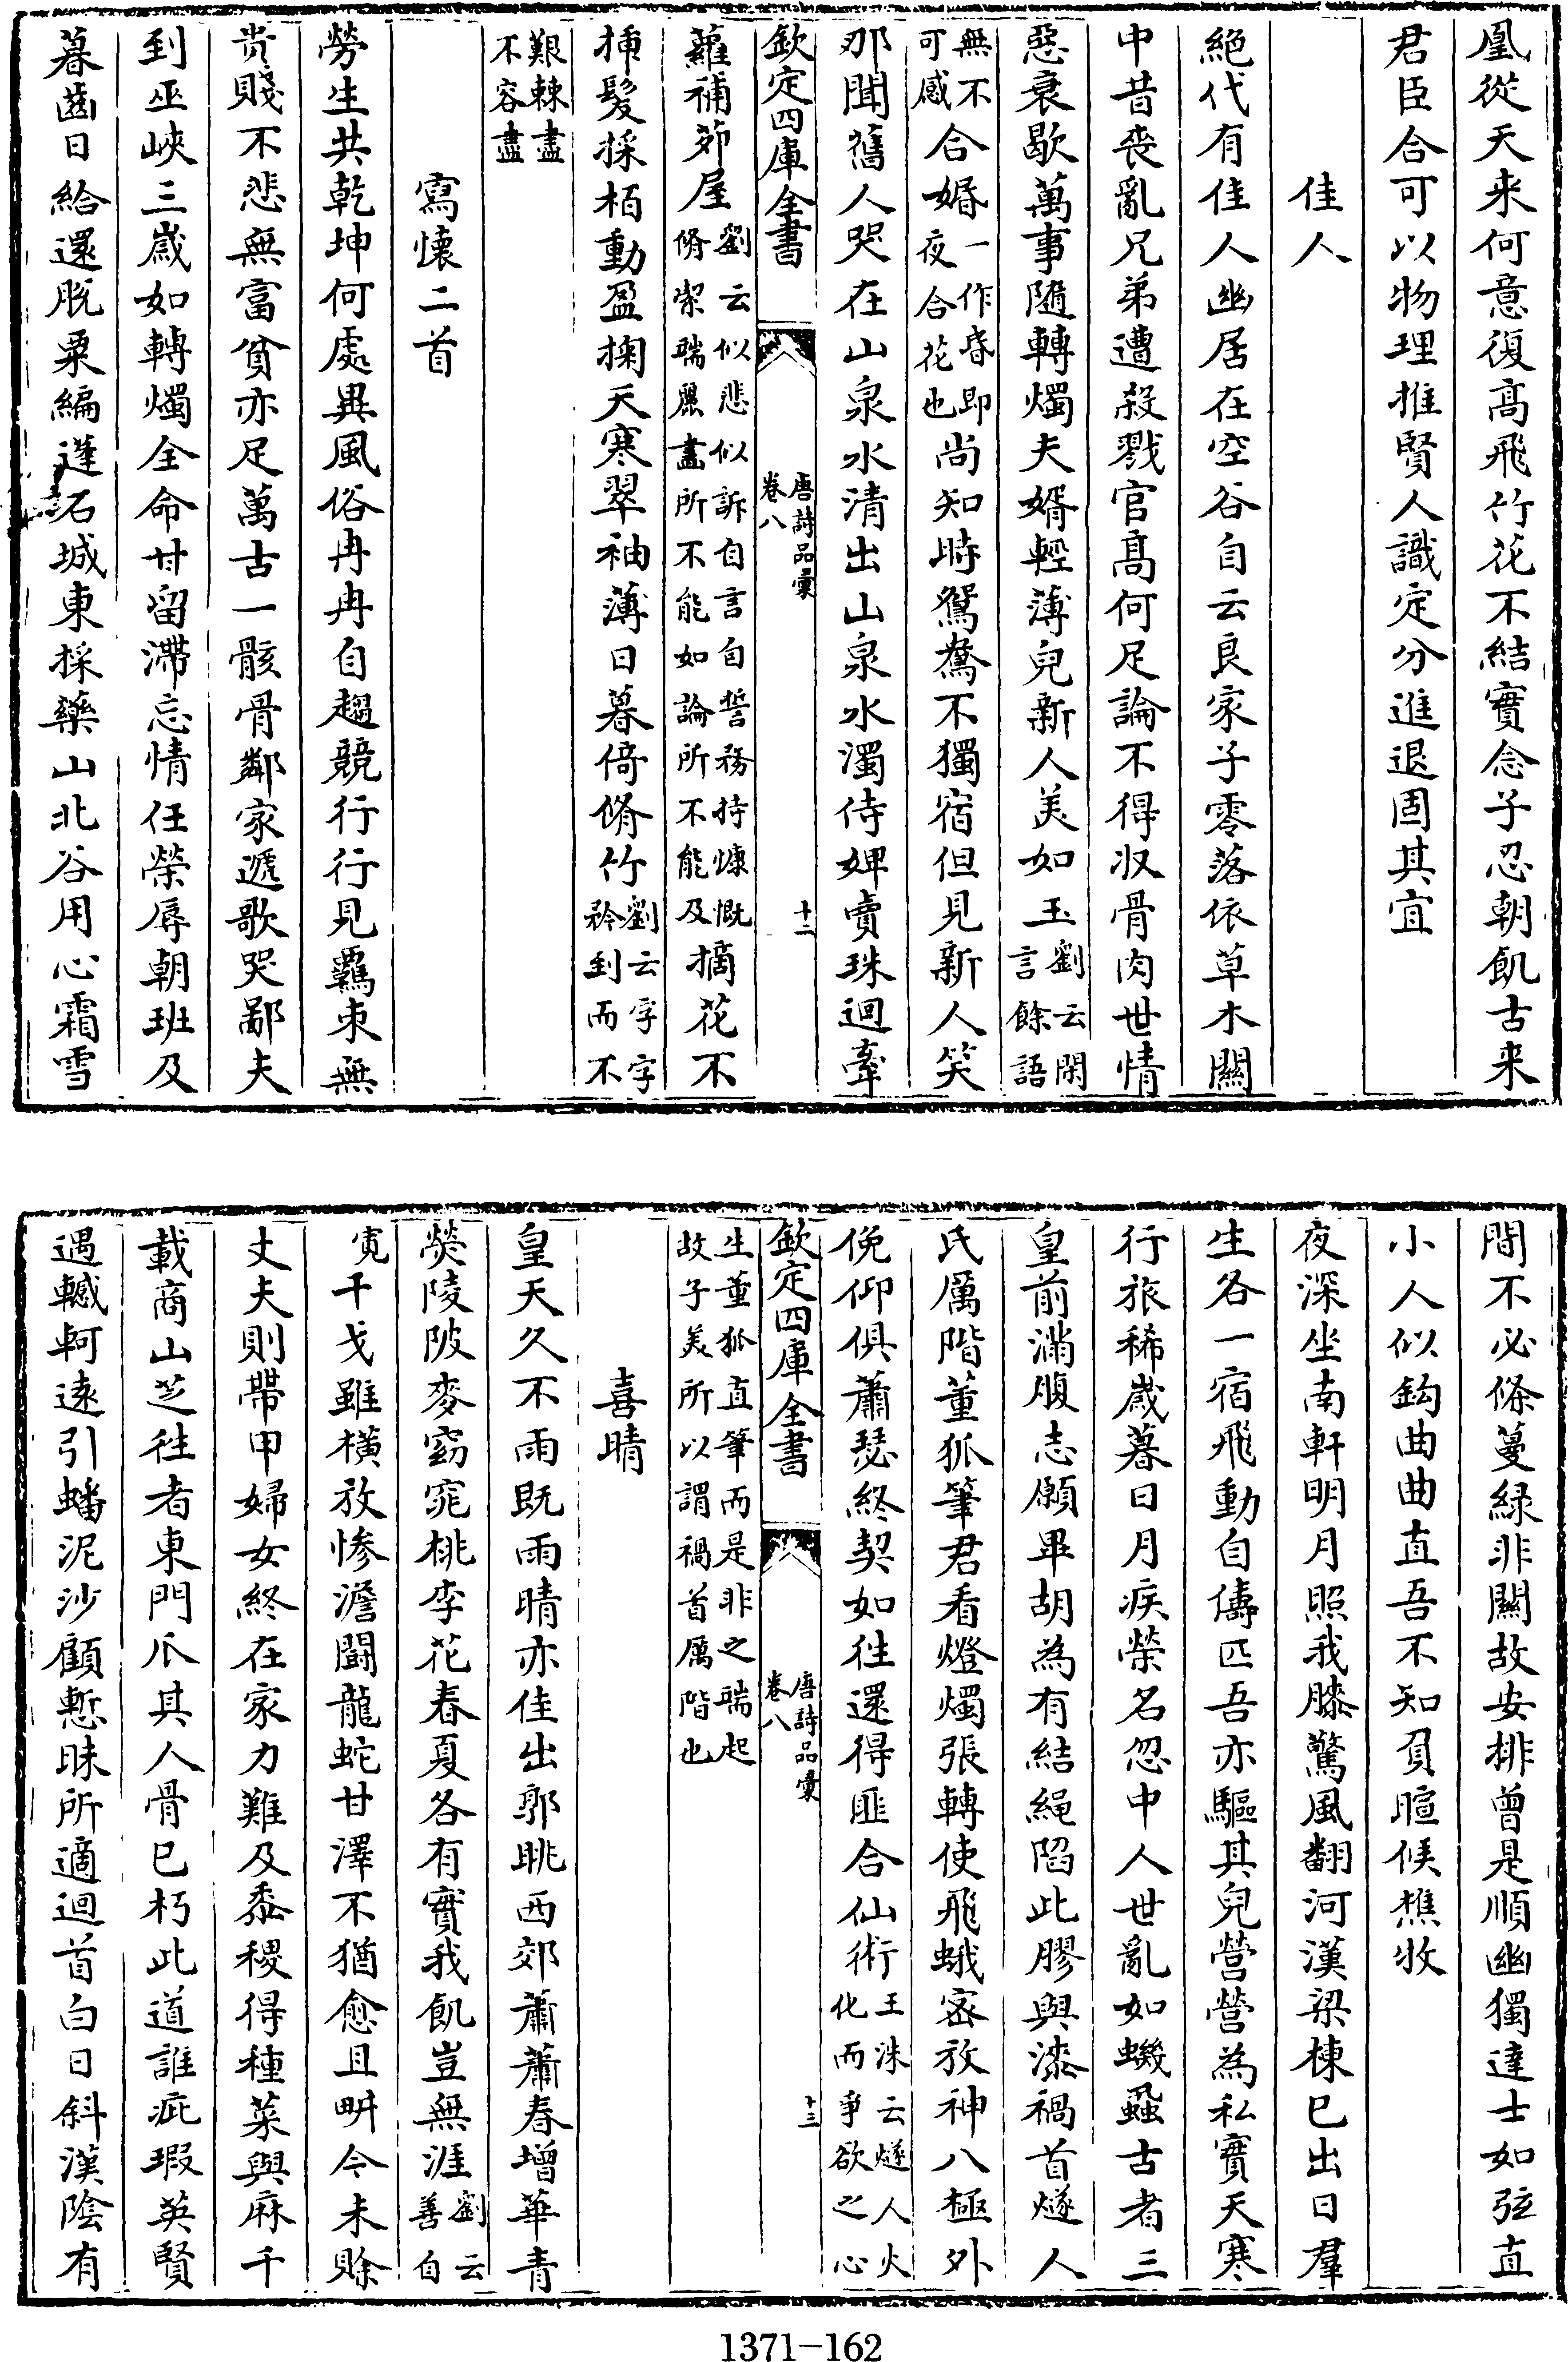 凰從天來何意復髙飛竹花不結實念子忍朝飢古来
君臣合可以物理推賢人識定分進退固其宜
佳人
絕代有佳人幽居在空谷自云良家子零落依草木關
中昔喪亂兄弟遭殺戮官髙何足論不得収骨肉世情
惡衰歇萬事隨轉燭夫婿輕薄兒新人美如玉劉云閑言餘語
無不可感合婚一作昏即夜合花也尚知時鴛鴦不獨宿但見新人笑
那聞舊人哭在山泉水清出山泉水濁侍婢賣珠迴牽
欽定四庫全書
唐詩品彙
卷八
十二
蘿補茆屋劉云似悲似訴自言自誓務持慷慨脩潔端麗畫所不能如論所不能及摘花不
插髪採栢動盈掬天寒翠袖薄日暮倚脩竹劉云字字矜到而不
艱棘盡不容盡
寫懷二首
勞生共乾坤何處異風俗冉冉自趨競行行見羈束無
貴賤不悲無富貧亦足萬古一骸骨鄰家遞歌哭鄙夫
到巫峽三歲如轉燭全命甘留滯忘情任榮辱朝班及
暮齒日給還脫粟編蓬石城東採藥山北谷用心霜雪
間不必條蔓緑非關故安排曾是順幽獨達士如弦直
小人似鈎曲曲直吾不知負暄候樵牧
夜深坐南軒明月照我膝驚風翻河漢梁棟已出日羣
生各一宿飛動自儔匹吾亦驅其兒營營為私實天寒
行旅稀歲暮日月疾榮名忽中人世亂如蟣蝨古者三
皇前滿腹志願畢胡為有結繩陷此膠與漆禍首燧人
氏厲階董狐筆君看燈燭張轉使飛蛾密放神八極外
俛仰俱蕭瑟終契如往還得匪合仙術王洙云燧人火化而爭欲之心
欽定四庫全書
唐詩品彙
卷八
十三
生董狐直筆而是非之端起故子美所以謂禍首厲階也
喜晴
皇天久不雨既雨晴亦佳出郭眺西郊蕭蕭春增華青
熒陵陂麥窈窕桃李花春夏各有實我飢豈無涯劉云善自
寛干戈雖橫放慘澹鬭龍蛇甘澤不猶愈且畊今未賖
丈夫則帶甲婦女終在家力難及黍稷得種菜與麻千
載商山芝徃者東門爪其人骨已朽此道誰疵瑕英賢
遇轗軻逺引蟠泥沙顧慙昧所適迴首白日斜漢陰有
1371-162